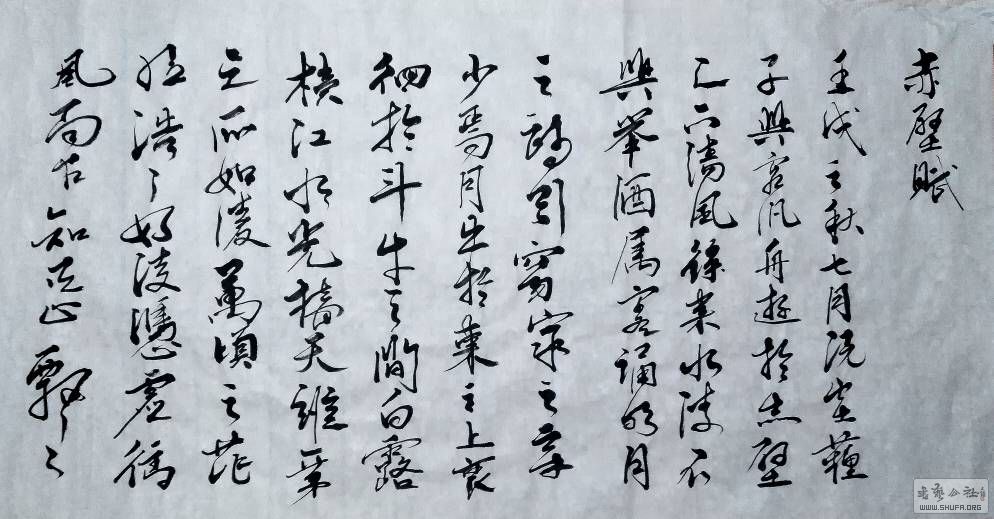 赤壁賦
壬戌之秋七月既望蘇
子與客汎舟遊於赤壁
之下清風徐來水波不
興舉酒屬客誦明月
之詩窈窕之章
少焉月出於東之上裵
徊於斗牛之間白露
橫江水光接天縱葦
之所如凌萬頃之茫
然浩〻憑虛御
風而不知其止飄〻
书艺公社
WWW.SHUFA.ORG